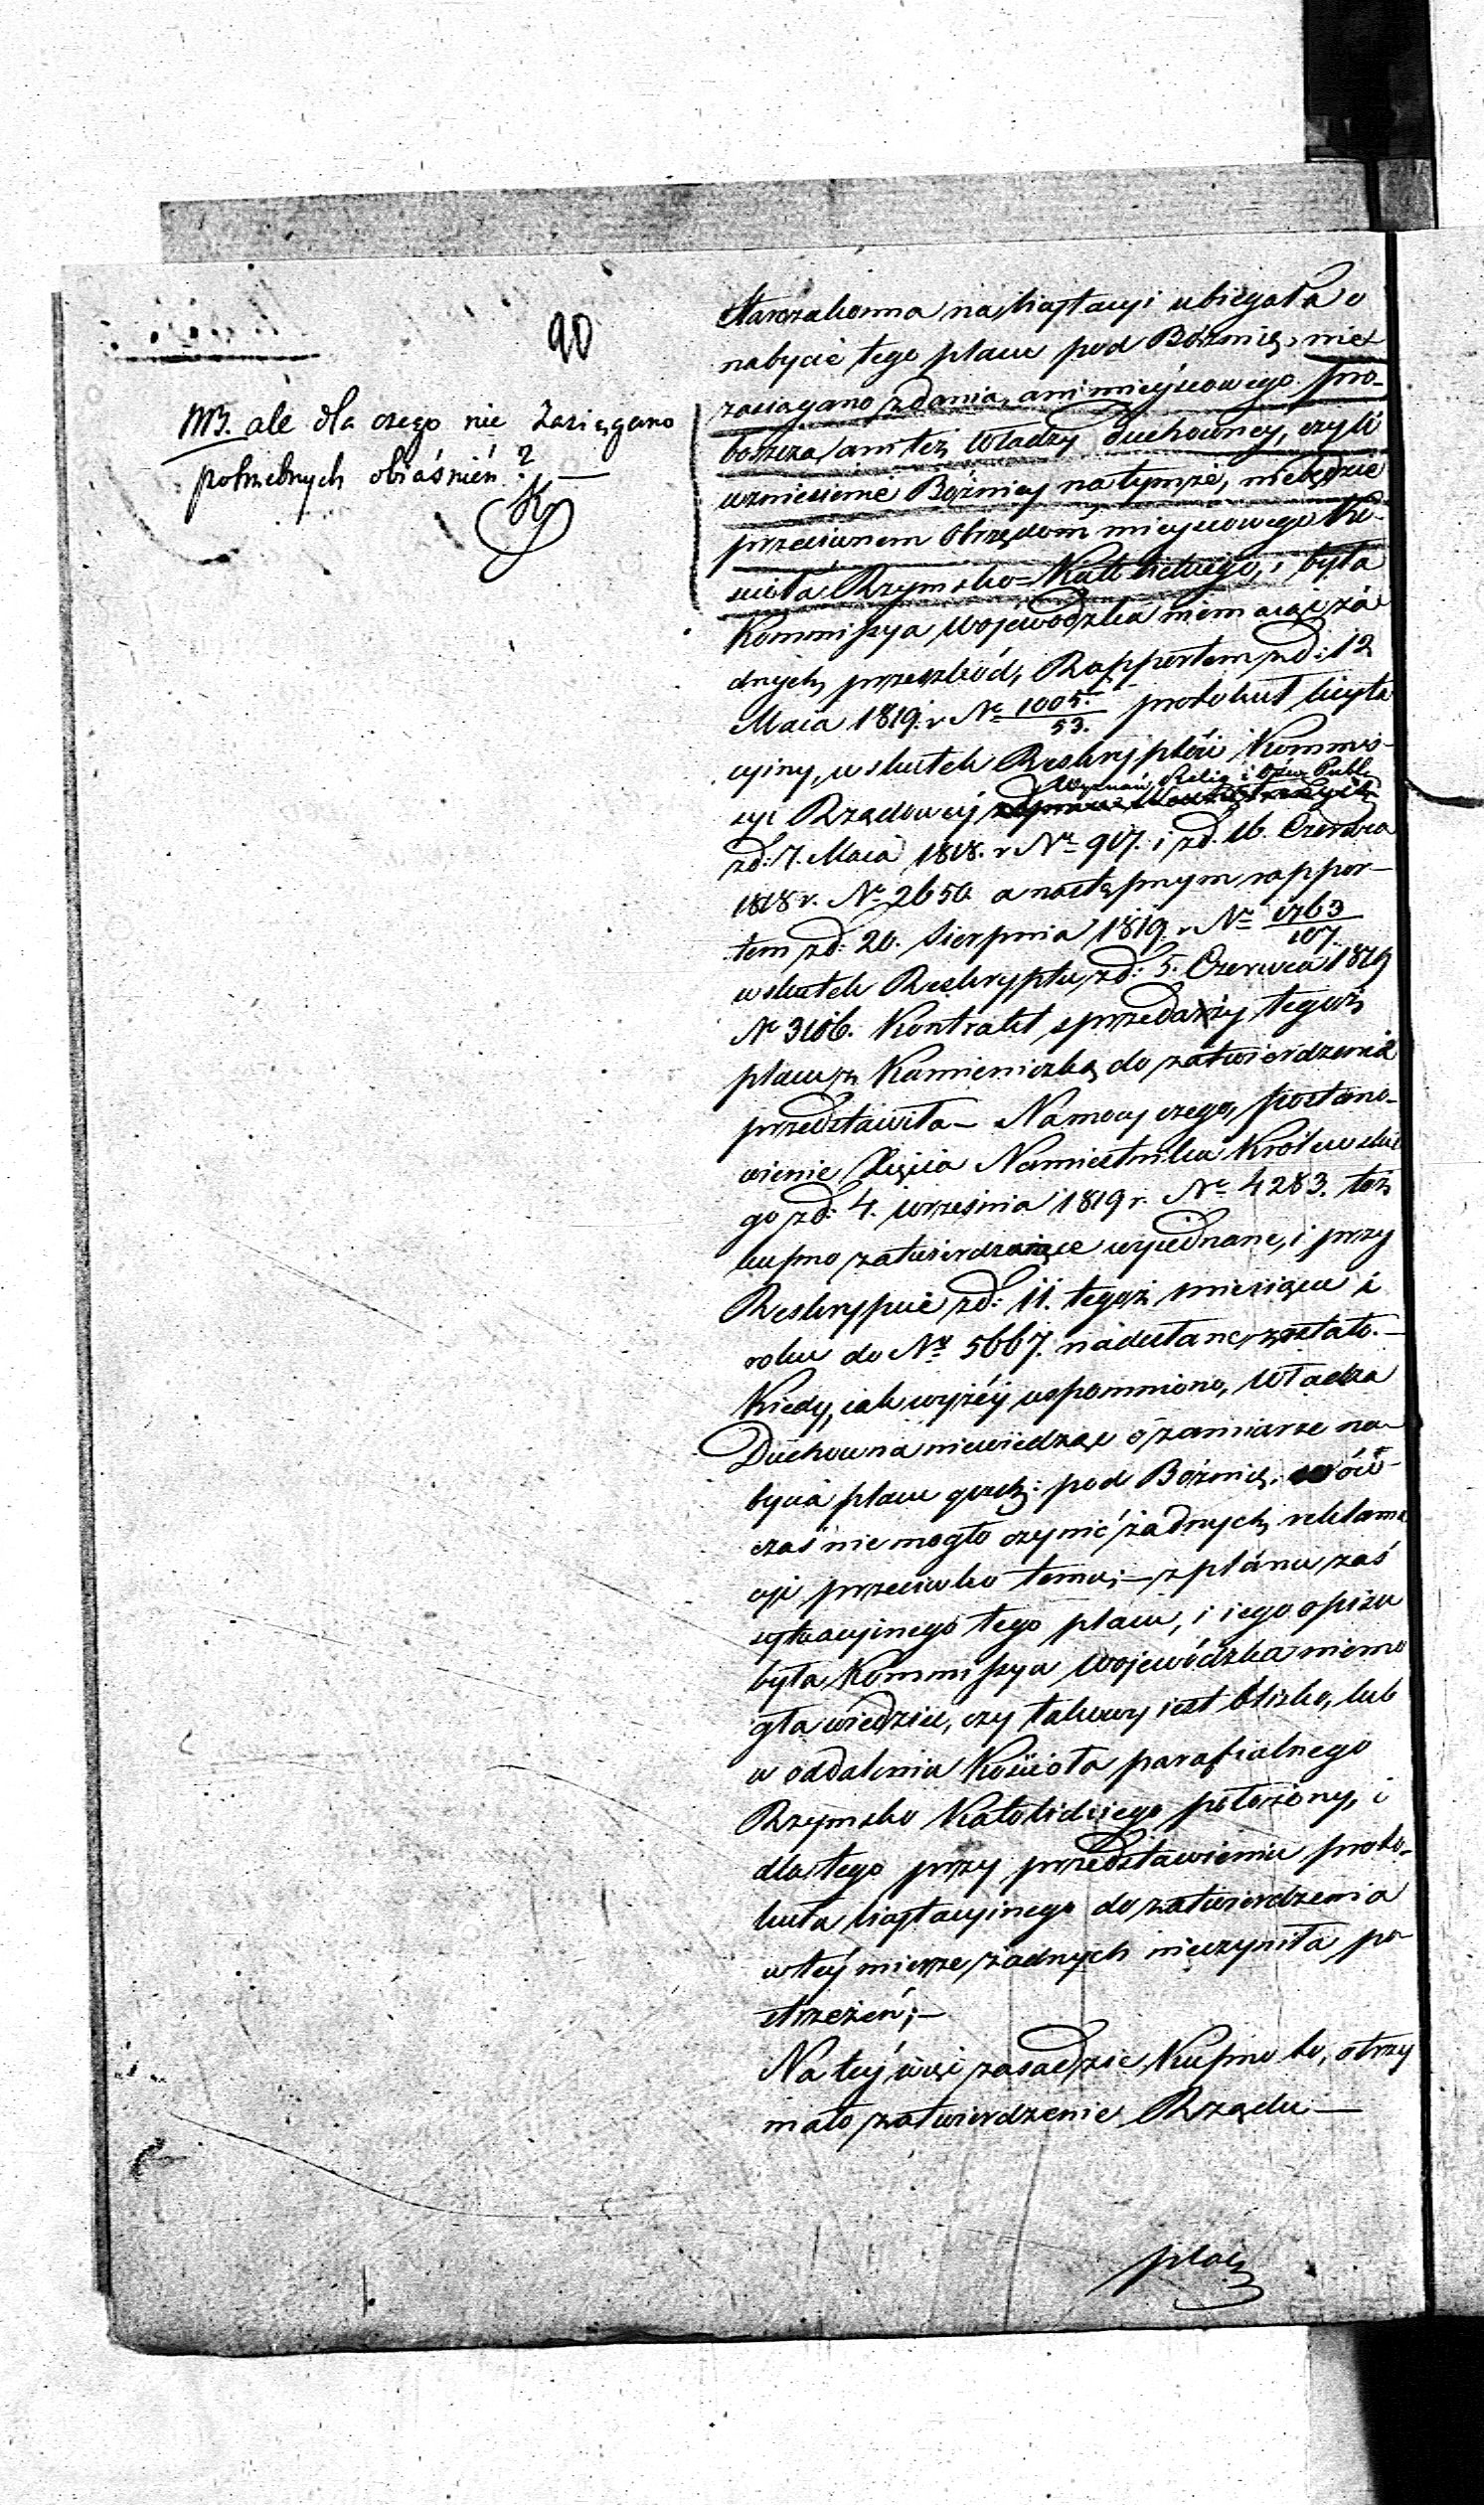 90
NB. ale dla czego nie zasięgano
potrzebnych obiaśnień? —
Starozakonna na licytacyi ubiegała o
nabycie tego placu pod Bożnię, nie
zasiągano zdania, ani mieyscowego pro-
boszcza, ani też Władzy duchowney, czyli
wzniesienie Bożnicy na tymże, niebędzie
przeciwnem obrzędom mieyscowego Ko-
scioła Rzymsko-Katolickiego, i była
Kommissya Wojewodzka niemaiąc ża
dnych przeszkód, Rapportem zd: 12
Maia 1819 r. Nr 1005/53. protokuł licyta
cyiny, w skutek Reskryptów Kommis-
syi Rządowey Wyznań Relig: i Ośw: Publ:
zd: 7. Maia 1818. r Nr 917. i zd. 16. Czerwca
1818 r. Nr 2650 a następnym rappor-
tem zd: 20. Sierpnia 1819. r Nr 1763/107.
w skutek Reskryptu zd: 5. Czerwca 1819
Nr 3106. Kontrakt sprzedaży tegoż
placu z Kamieniczką do zatwierdzenia
przedstawiła — Na mocy czego, postano-
wienie Xięcia Namiestnika Królewskie
go zd: 4. września 1819 r. Nr 4283. toż
kupno zatwierdzaiące wyiednane, i przy
Reskrypcie zd: 11. tegoż miesiąca i
roku do Nr 5667. nadesłane zostało. —
Kiedy, iak wyżéy wspomniono, Władza
Duchowna niewiedząc o zamiarze na-
bycia placu quest: pod Bożnię, wów-
czas nie mogło czynić żadnych reklama
cyi przeciwko temu; — z planu zaś
sytuacyinego tego placu, i iego opisu
była Kommissya Wojewódzka niemo
gła wiedzieć, czy takowy iest blisko, lub
w oddaleniu Kościoła parafialnego
Rzymsko Katolickiego położony, i
dla tego przy przedstawieniu proto-
kułu licytacyinego do zatwierdzenia
w téy mierze żadnych nieczyniła po-
strzeżeń; —
Na téy więc zasadzie, Kupno to, otrzy
mało zatwierdzenie Rządu —
plac